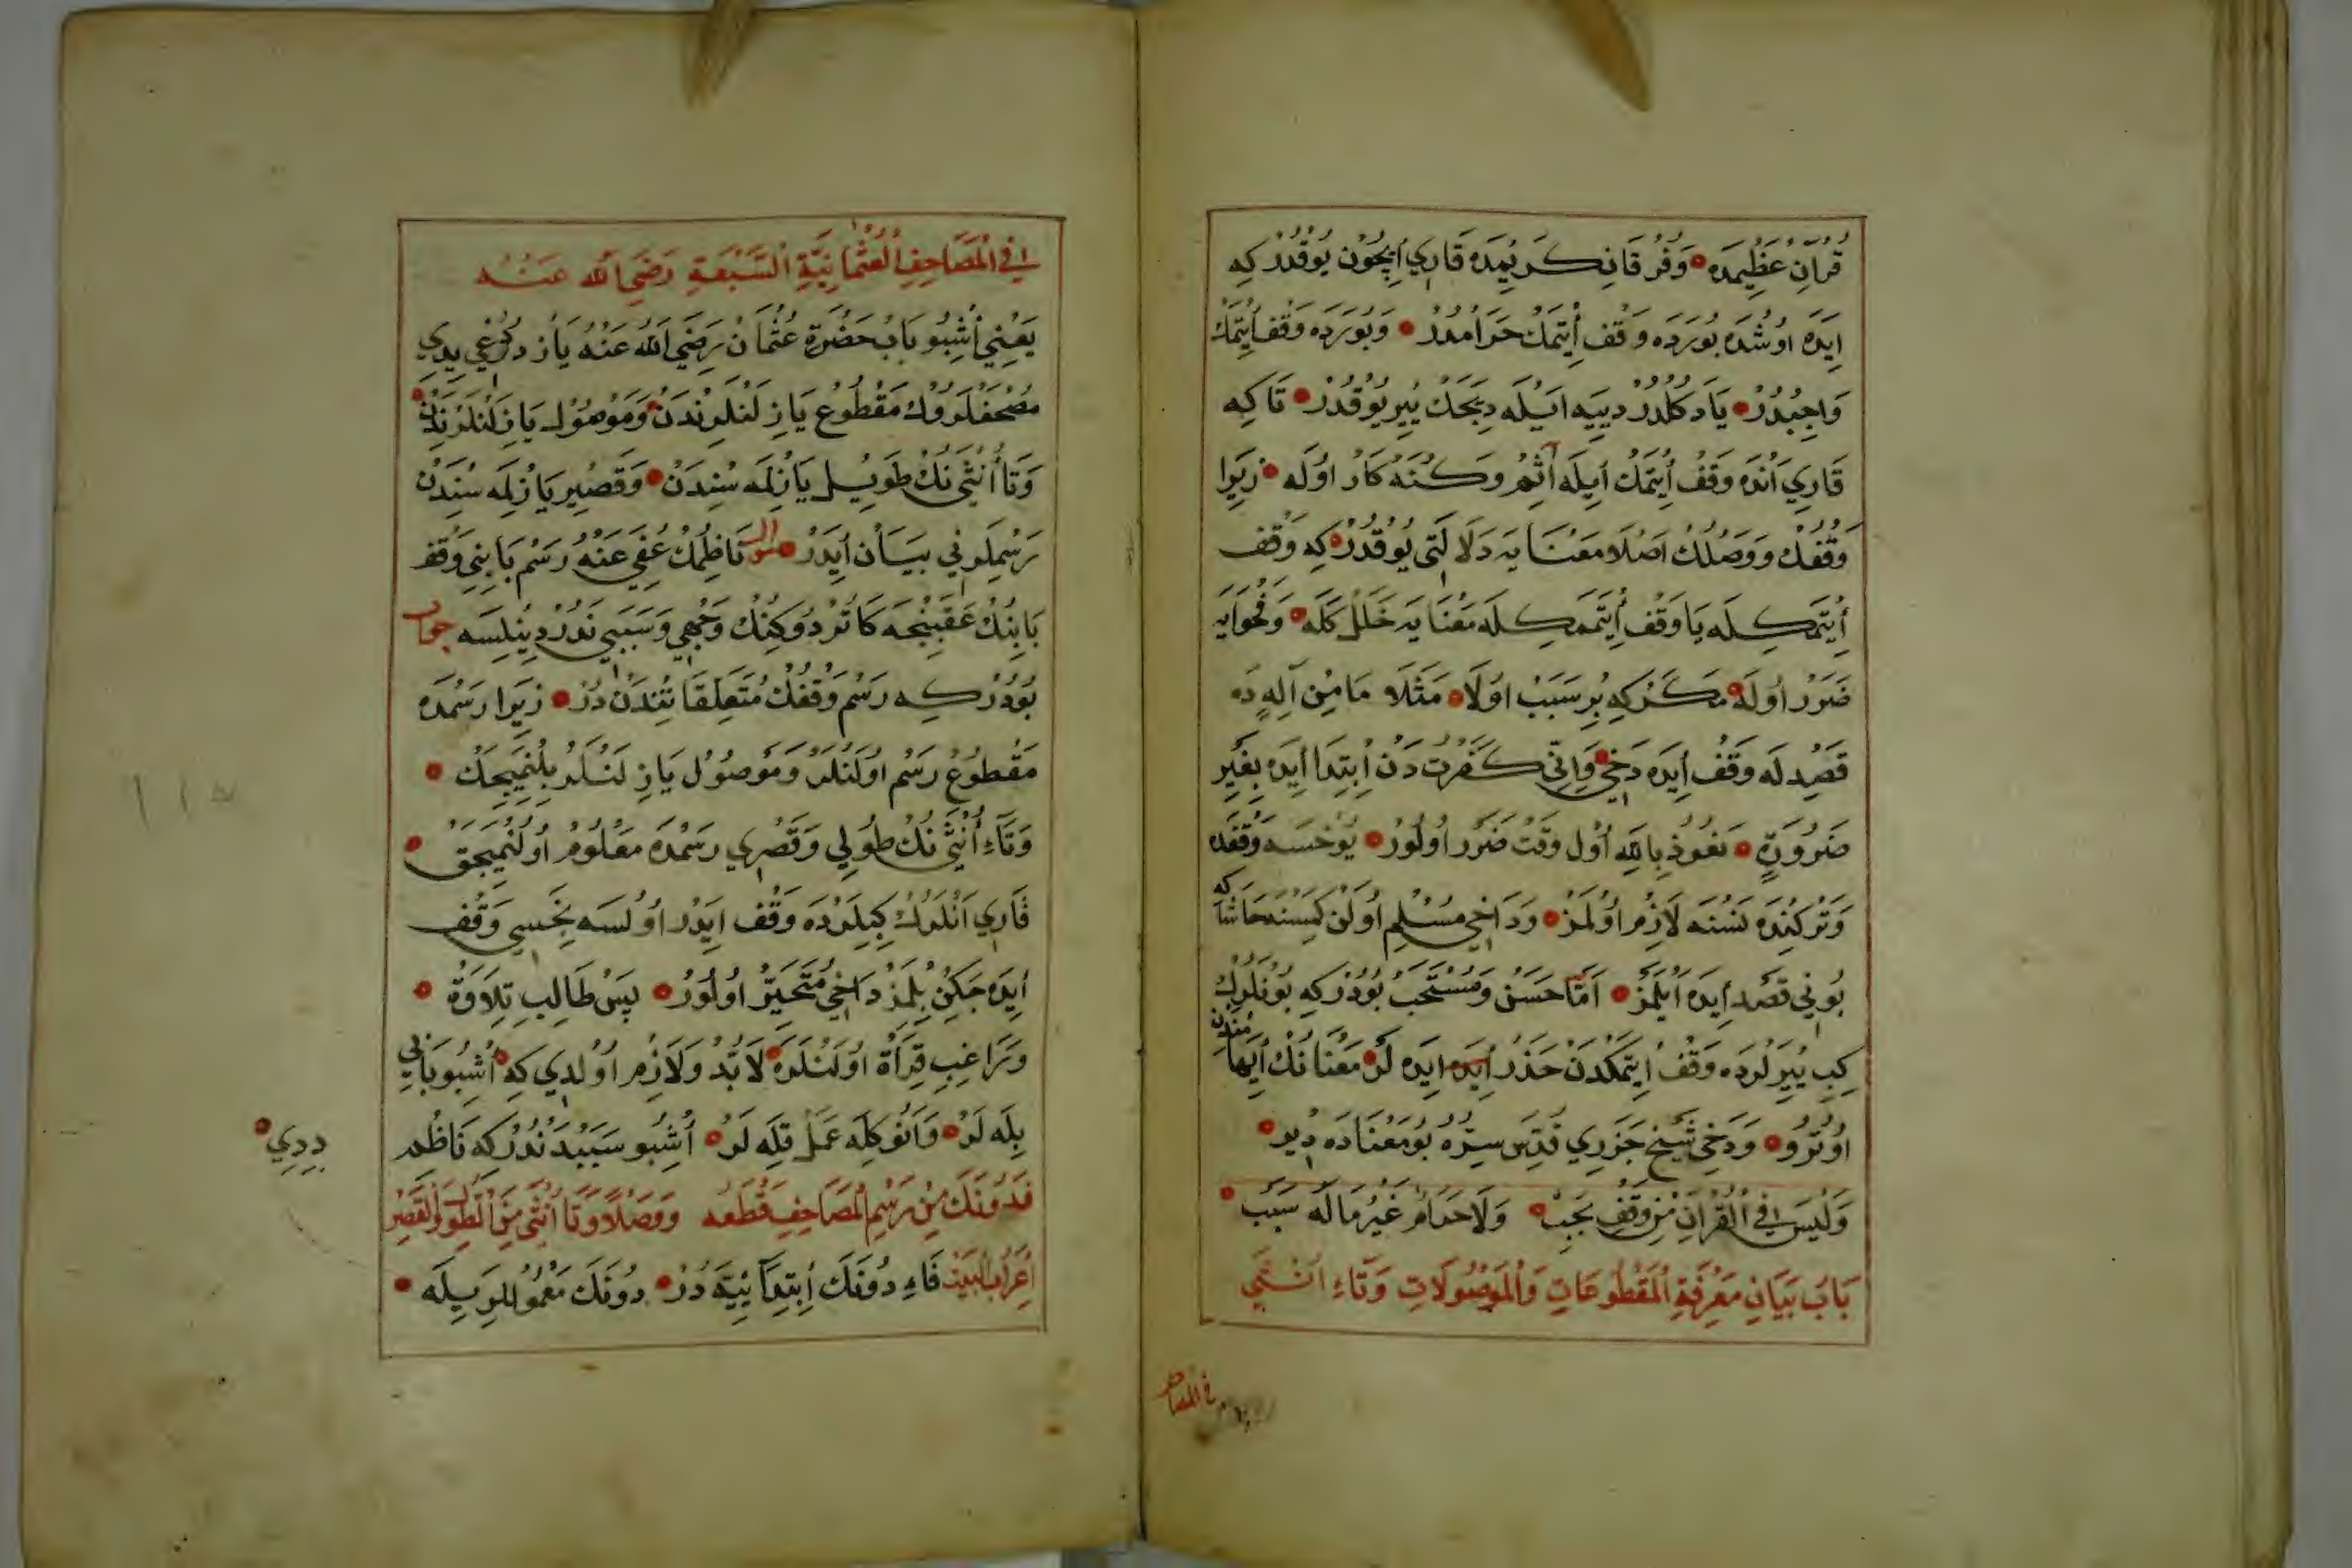 قُرْآنِ عَظِيمَدَه وَفُرْقَانِ كَرِيمَدَه قَارِي اِيچُونْ يُوقْدُرْ كِه
اِيدَه اوُشْدَه بُويَرْدَه وَقْف اِيتْمَكْ حَرَامْدُرْ وَبُويَرْدَه وَقْف اِيتْمَكْ
وَاجِبْدُرْ يَادَكُلْدُرْ دِيَيه اَيْلَه دِيَجَكْ يِيرْ يُوقْدُرْ تَا كِه
قَارِي اَنْدَه وَقْفْ اِيتْمَكْ اِيلَه آثِمْ وَكُنَهْكَارْ اوُلَه زِيرَا
وَقْفُكْ وَوَصْلُكْ اَصْلَا مَعْنَايَه دَلَالَتِي يُوقْدُرْ كِه وَقْف
اِيتْمَكِلَه يَا وَقْف اِيتْمَمَكِلَه مَعْنَايَه خَلَلْ كَلَه وَفَحْوَايَه
ضَرَرْ اوُلَه مَكَرْ كِه بِرْ سَبَبْ اوُلَا مَثَلَا مَا مِنْ اِلَهٍ دَه
قَصْدِلَه وَقْفْ اِيدَه دَخِي وَاِنِّي كَفَرْتُ دَنْ اِبْتِدَا اِيدَه بِغَيْرِ
ضَرُورَةٍ نَعُوذُ بِاللهِ اُولْ وَقْتْ ضَرَرْ اوُلُورْ يُوخْسَه وَقْفَدَه
وَتَرْكِنْدَه نَسْنَه لَازِمْ اوُلْمَزْ وَدَاخِي مُسْلِمْ اوُلَنْ كِمْسَنَه حَاشَا كِه
بُونِي قَصْد اِيدَه اَيْلَمَزْ اَمَّا حَسَنْ وَمُسْتَحَبْ بُودُرْ كِه بُونْلَرُكْ
كِبِي يِيرْلَرْدَه وَقْفْ اِيتْمَكْدَنْ حَذَرْ اِيدَه اِيدَه لَرْ مَعْنَانُكْ اِيهَامْنَدَنْ
اوُتْرُو وَدَخِي شَيْخِ جَزَرِي قُدِّسَ سِرُّهُ بُو مَعْنَادَه دِيدِي
وَلَيْسَ فِي الْقُرْآنِ مِنْ وَقْفٍ يَجِبْ وَلَا حَرَامٍ غَيْرُ مَا لَهُ سَبَبْ
بَابُ بَيَانِ مَعْرِفَةِ الْمَقْطُوعَاتِ وَالْمَوْصُولَاتِ وَتَاءِ اُنْثَى
فِي الْمَصَاحِفِ
فِي الْمَصَاحِفِ الْعُثْمَانِيَّةِ السَّبْعَةِ رَضِيَ اللهُ عَنْهُ
يَعْنِي اُشْبُو بَابْ حَضْرَةِ عُثْمَانْ رَضِيَ اللهُ عَنْهُ يَازْدُرْدُغِي يِدِي
مُصْحَفْلَرُوكْ مَقْطُوعْ يَازِلَنْلَرِنْدَنْ وَمَوْصُولْ يَازِلَنْلَرِنْدَنْ
وَتَا اُنْثَى نَكْ طَوِيلْ يَازِلْمَه سِنْدَنْ وَقَصِيرْ يَازِلْمَه سِنْدَنْ
رَسْمِلَرِنِي بَيَانْ اِيدَرْ سؤال نَاظِمُكْ عُفِيَ عَنْهُ رَسْمْ بَابِنِي وَقْف
بَابِنُكْ عَقِبِنْجَه كَاتُرْدُوكِنُكْ وَجْهِي وَسَبَبِي نَدُرْ دِينِلْسَه جواب
بُودُرْ كِه رَسْمْ وَقْفُكْ مُتَعَلِّقَاتِنْدَنْ دُرْ زِيرَا رَسْمْدَه
مَقْطُوعْ رَسْم اوُلَنَلَرْ وَمَوْصُولْ يَازِلَنْلَرْ بِلِنْمَيِجَكْ
وَتَاءِ اُنْثَى نَكْ طُولِي وَقَصْرِي رَسْمْدَه مَعْلُومْ اوُلُنْمَيِجَقْ
قَارِي اَنْلَرُكْ كِبِيلَرْدَه وَقْف اِيدَرْ اوُلْسَه نِجَسِي وَقْف
اِيدَه جَكِنْ بِلْمَزْ دَاخِي مُتَحَيِّرْ اوُلُورْ پَسْ طَالِبِ تِلَاوَةْ
وَرَاغِبِ قِرَأَةْ اوُلَنْلَرَه لَابُدْ وَلَازِمْ اوُلْدِي كِه اُشْبُو بَابِي
بِلَه لَرْ وَانُوكِلَه عَمَلْ قِلَه لَرْ اُشْبُو سَبَبْدَنْدُرْ كِه نَاظِمْ
دِدِي
فَدُونَكَ مِنْ رَسْمِ الْمَصَاحِفِ قَطْعَهُ وَوَصْلًا وَتَا اُنْثَى مِنَ الطُّولِ وَالْقَصْرِ
اِعْرَابُ الْبَيْتِ فَاءِ دُونَكَ اِبْتِدَائِيَّه دُرْ دُونَكَ مَعْمُولَلَرِيلَه